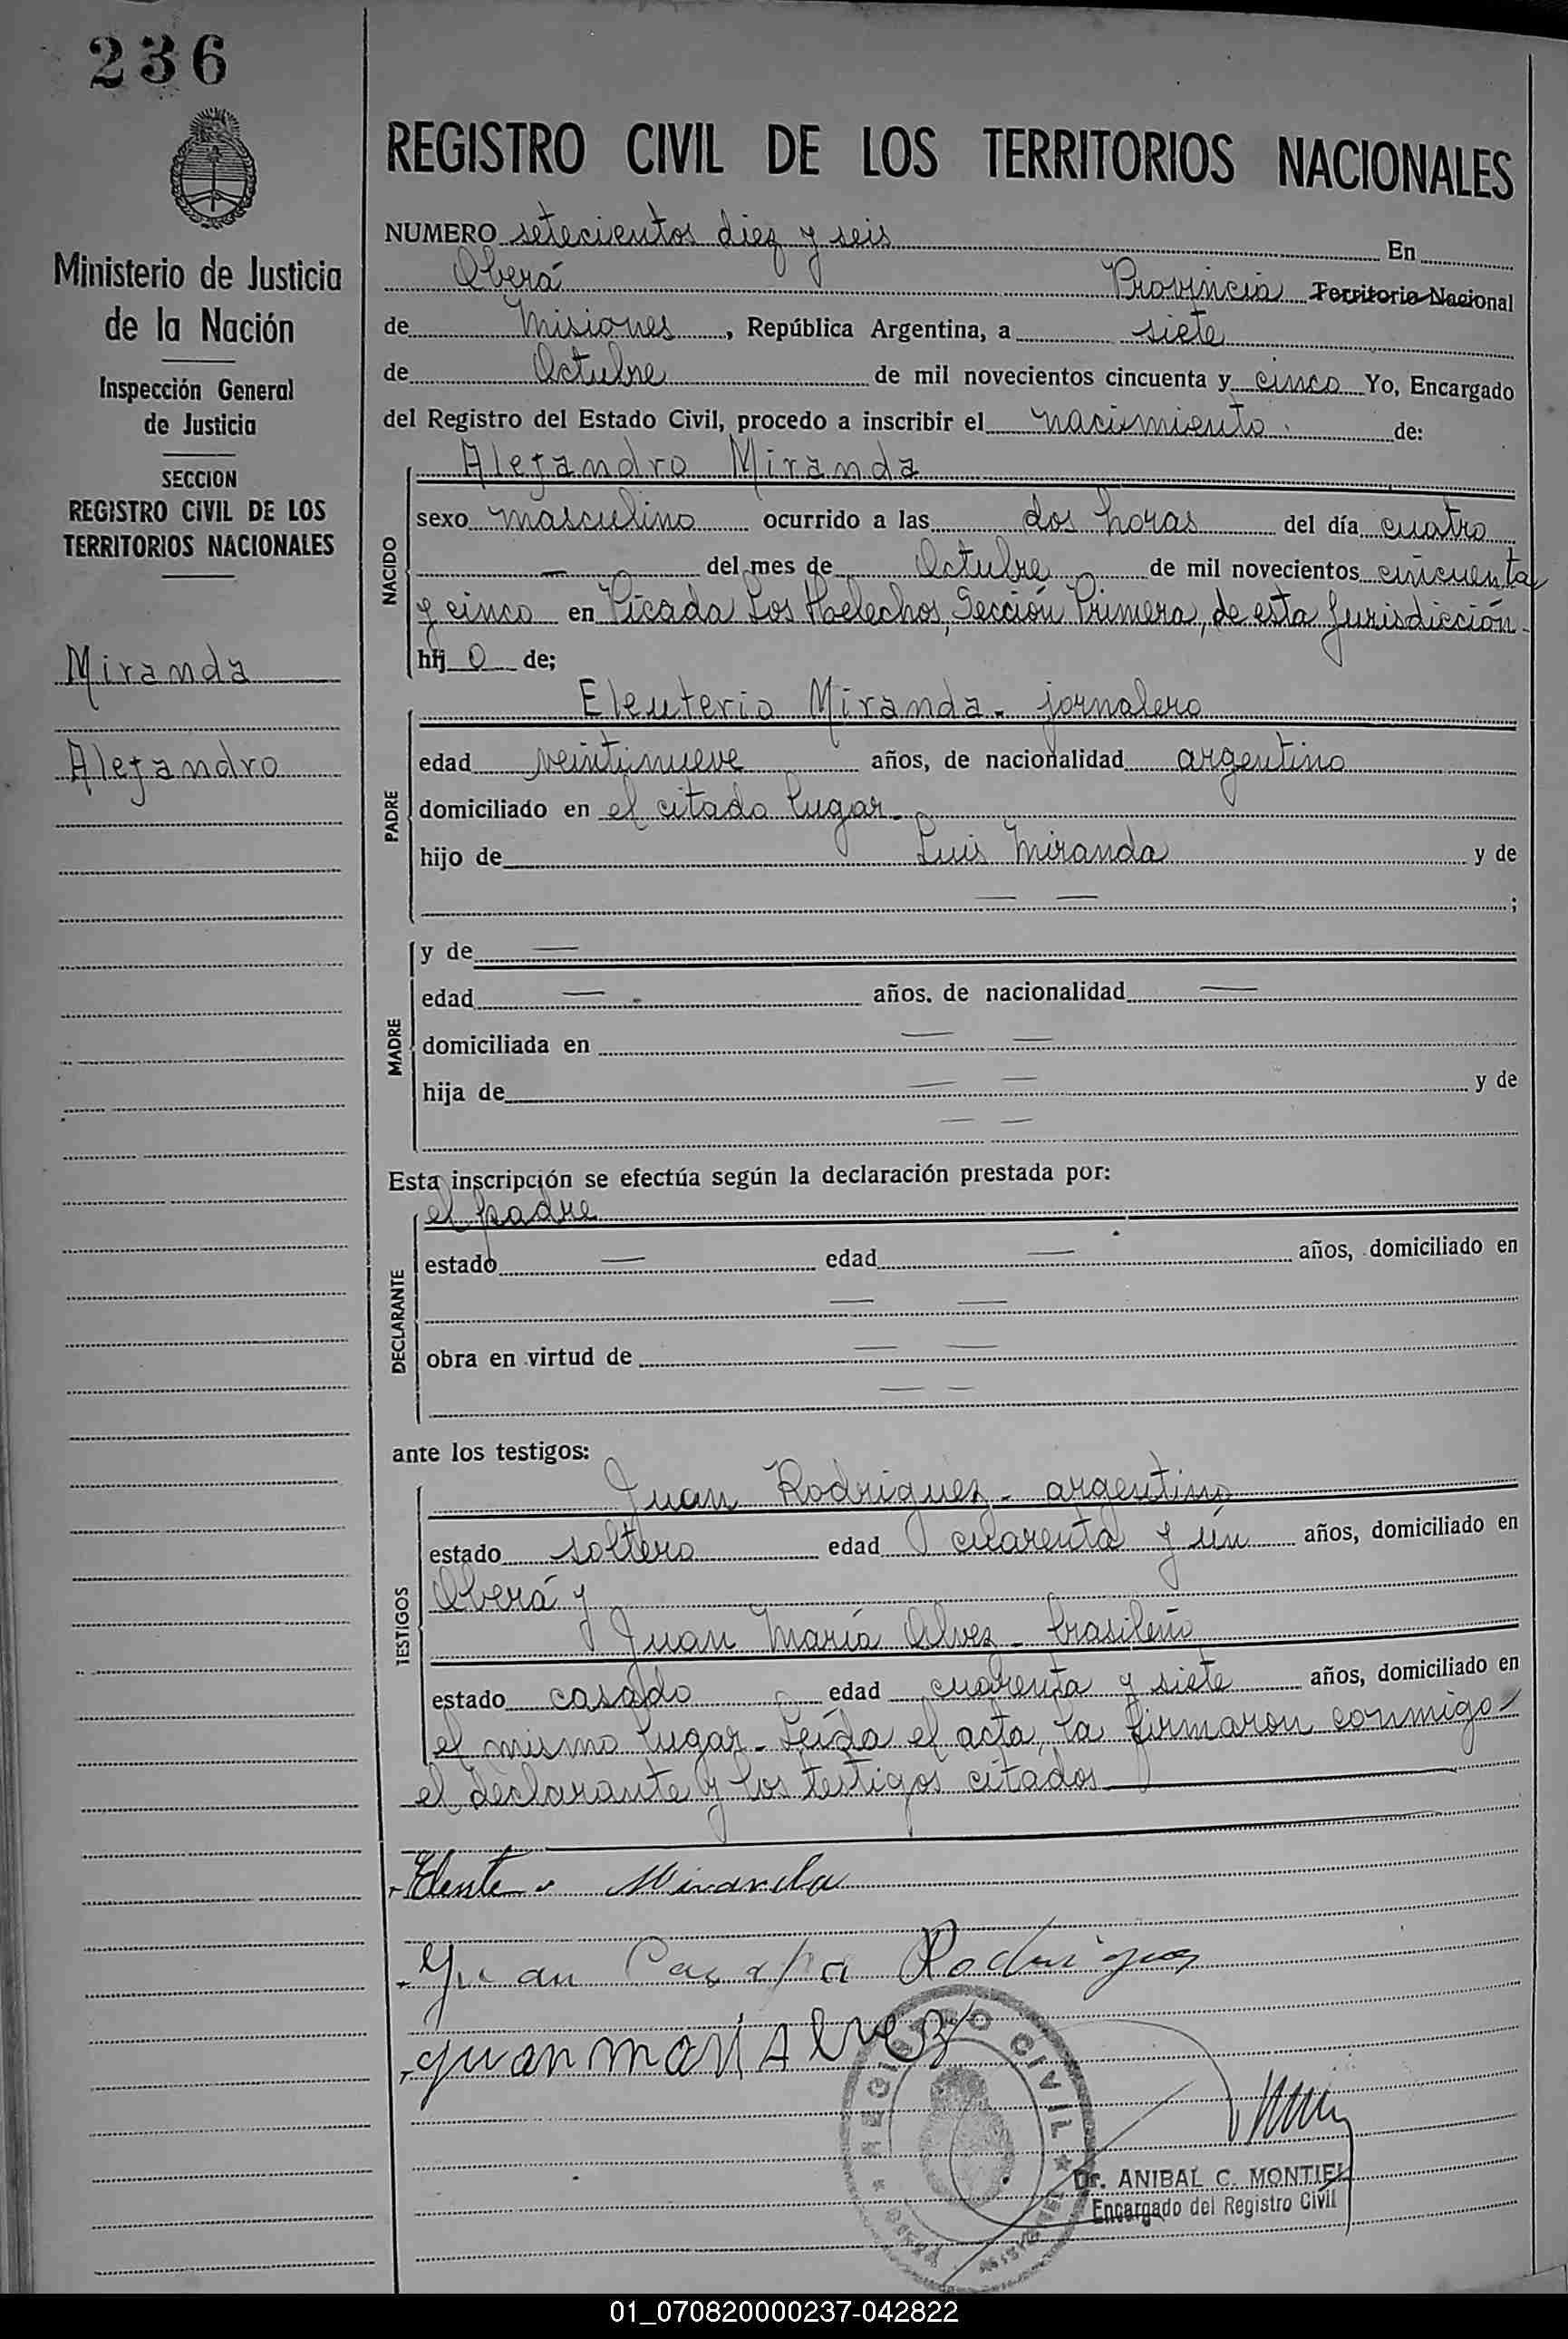 236
Ministerio de Justicia
de la Nación
Inspección General
de Justicia
SECCION
REGISTRO CIVIL DE LOS
TERRITORIOS NACIONALES
Miranda
Alejandro
REGISTRO CIVIL DE LOS TERRITORIOS NACIONALES
NUMERO setecientos diez y seis En
Oberá Provincia Territorio Nacional
de Misiones, República Argentina, a siete
de Octubre de mil novecientos cincuenta y cinco Yo, Encargado
del Registro del Estado Civil, procedo a inscribir el nacimiento de:
NACIDO
Alejandro Miranda
sexo masculino ocurrido a las dos horas del día cuatro
— del mes de Octubre de mil novecientos cincuenta
y cinco en Picada Los Helechos, Sección Primera, de esta Jurisdicción-
hij o de;
PADRE
Eleuterio Miranda - jornalero
edad veintinueve años, de nacionalidad argentino
domiciliado en el citado lugar-
hijo de Luis Miranda y de
— — ;
MADRE
y de —
edad — . años. de nacionalidad —
domiciliada en — —
hija de — — y de
— —
Esta inscripción se efectúa según la declaración prestada por:
DECLARANTE
el padre
estado — edad — años, domiciliado en
— —
obra en virtud de — —
— —
ante los testigos:
TESTIGOS
Juan Rodriguez - argentino
estado soltero edad cuarenta y ún años, domiciliado en
Oberá y
Juan María Alvez - brasileño
estado casado edad cuarenta y siete años, domiciliado en
el mismo lugar - Leída el acta, la firmaron conmigo-
el declarante y los testigos citados
Miranda
Juan Rodriguez
Juan mari Alvez
REGISTRO CIVIL
Dr. ANIBAL C. MONTIEL
Encargado del Registro Civil
01_070820000237-042822